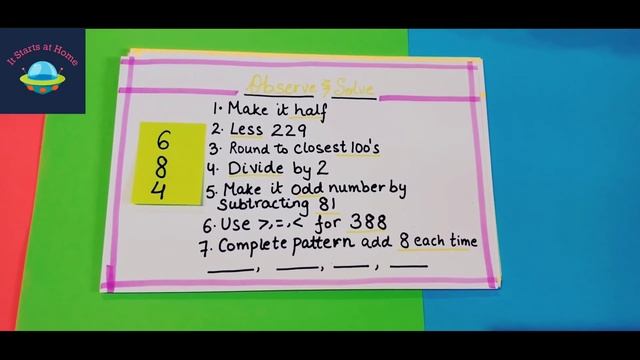 It Starts at Home
Observe & Solve
6
8
4
1. Make it half
2. Less 229
3. Round to closest 100's
4. Divide by 2
5. Make it odd number by
subtracting 81
6. Use >,=,< for 388
7. Complete pattern add 8 each time
____, ____, ____, ____